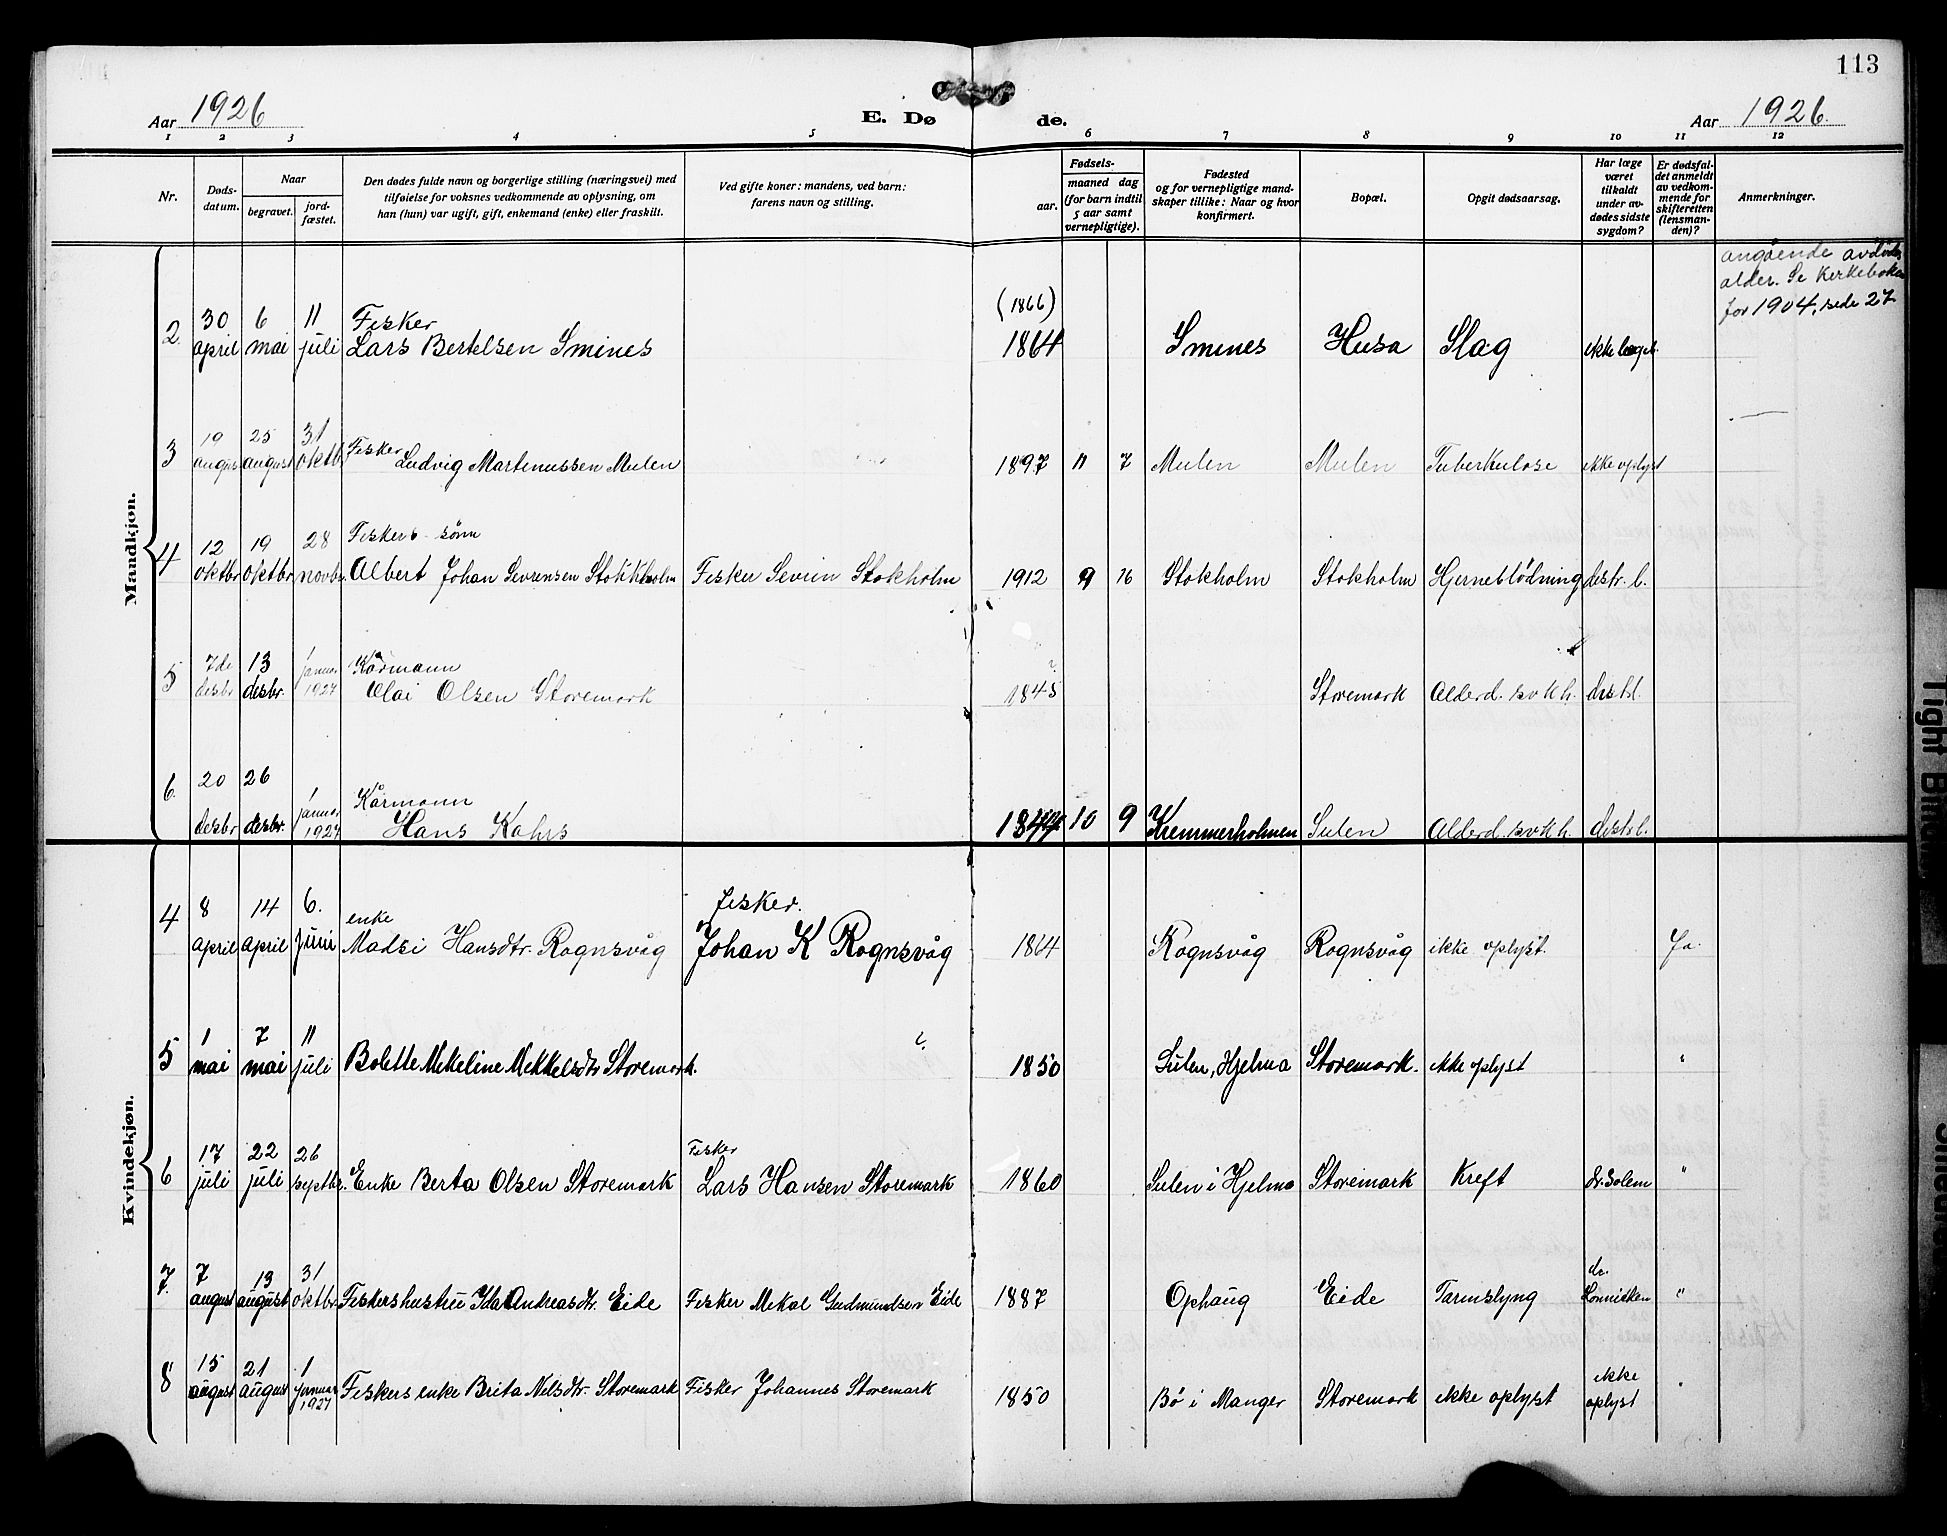 113
Aar 1926
E. Døde.
Aar 1926.
1 2 3 4 5 6 7 8 9 10 11 12
Nr.
Døds-
datum.
Naar
begravet.
jord-
fæstet.
Den dødes fulde navn og borgerlige stilling (næringsvei) med
tilføielse for voksnes vedkommende av oplysning, om
han (hun) var ugift, gift, enkemand (enke) eller fraskilt.
Ved gifte koner: mandens, ved barn:
farens navn og stilling.
Fødsels-
aar.
maaned dag
(for barn indtil
5 aar samt
vernepligtige).
Fødested
og for vernepligtige mand-
skaper tillike: Naar og hvor
konfirmert.
Bopæl.
Opgit dødsaarsag.
Har læge
været
tilkaldt
under av-
dødes sidste
sygdom?
Er dødsfal-
det anmeldt
av vedkom-
mende for
skifteretten
(lensman-
den)?
Anmerkninger.
Mandkjøn.
angående avdødes
alder. Se Kerkeboken
for 1904, side 27
30 6 11 Fisker (1866)
2 april mai juli Lars Bertelsen Smines 1864 Smines Husa Slag ikke læge b.
19 25 31 Fisker
3 august august oktb. Ludvig Martinussen Mulen 1897 11 7 Mulen Mulen Tuberkulose ikke oplyst
12 19 28 Fiskers sönn
4 oktbr oktbr novbr. Albert Johan Sevrensen Stokkholm Fisker Sevrin Stokholm 1912 9 16 Stokholm Stokholm Hjerneblödning distr. l.
7de 13 1 Kårmann
5 desbr desbr. januar 1927 Elai Olsen Storemark 1845 Storemark Alderd. svkh. distr. l.
20 26 1 Kårmann
6. desbr desbr. januar 1927 Hans Kahrs 1844 10 9 Kremmerholmen Sulen Alderd. svkh. distr. l.
Kvindekjøn.
8 14 6. enke fisker.
4 april april juni Madsi Hansdtr. Rognsvåg Johan K Rognsvåg 1864 Rognsvåg Rognsvåg ikke oplyst. Ja.
1 7 11 ?
5 mai mai juli Bolette Mekeline Mekkelsdtr Storemark. 1850 Sulen, Hjelma Storemark. ikke oplyst "
17 22 26 Fisker
6 juli juli septbr. Enke Berta Olsen Storemark Lars Hansen Storemark 1860 Sulen i Hjelma Storemark Kreft dr. Solem "
7 13 31 dr.
7. august august oktbr. Fiskershustru Ida Andreasdtr. Eide Fisker Mekal Gudmundsen Eide 1887 Ophaug Eide Tarmslyng "
15 21 1 ikke
8 august august januar 1927 Fiskers enke Brita Nilsdtr. Storemark Fisker Johannes Storemark 1850 Bö i Manger Storemark ikke oplyst oplyst "